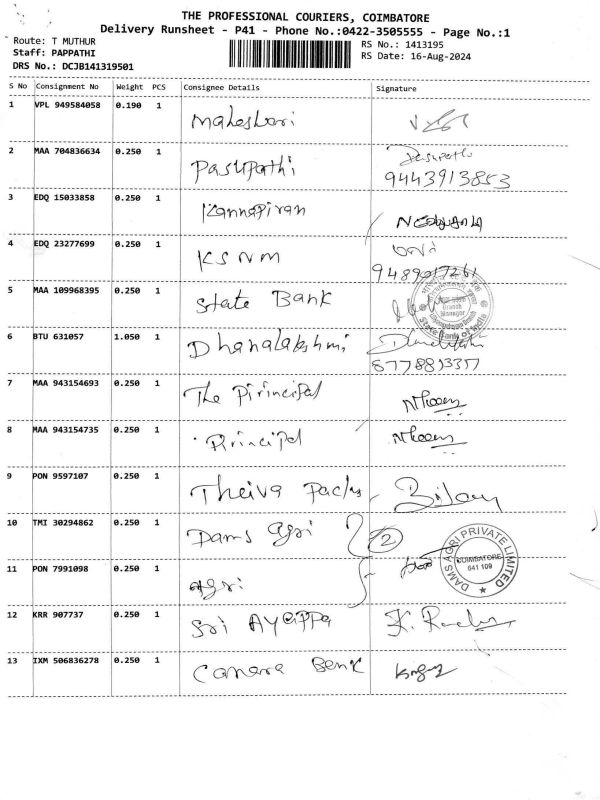 THE PROFESSIONAL COURIERS, COIMBATORE
Delivery Runsheet - P41 - Phone No.:0422-3505555 - Page No.:1
Route: T MUTHUR RS No.: 1413195
Staff: PAPPATHI RS Date: 16-Aug-2024
DRS No.: DCJB141319501
S No Consignment No Weight PCS Consignee Details Signature
1 VPL 949584058 0.190 1 Maheshwari
2 MAA 704836634 0.250 1 Pasupathi Pasupathi
9443913853
3 EDQ 15033858 0.250 1 Kannapiran
4 EDQ 23277699 0.250 1 KSNM
9489017261
5 MAA 109968395 0.250 1 State Bank
Branch Manager
State Bank of India
6 BTU 631057 1.050 1 Dhanalakshmi
8778813317
7 MAA 943154693 0.250 1 The Pirincipal
8 MAA 943154735 0.250 1 Principal
9 PON 9597107 0.250 1 Theiva Packs
10 TMI 30294862 0.250 1 Dams agri 2
DAMS AGRI PRIVATE LIMITED
COIMBATORE
641 109
11 PON 7991098 0.250 1 agri
12 KRR 907737 0.250 1 Sri AYappa
13 IXM 506836278 0.250 1 Canera Benk